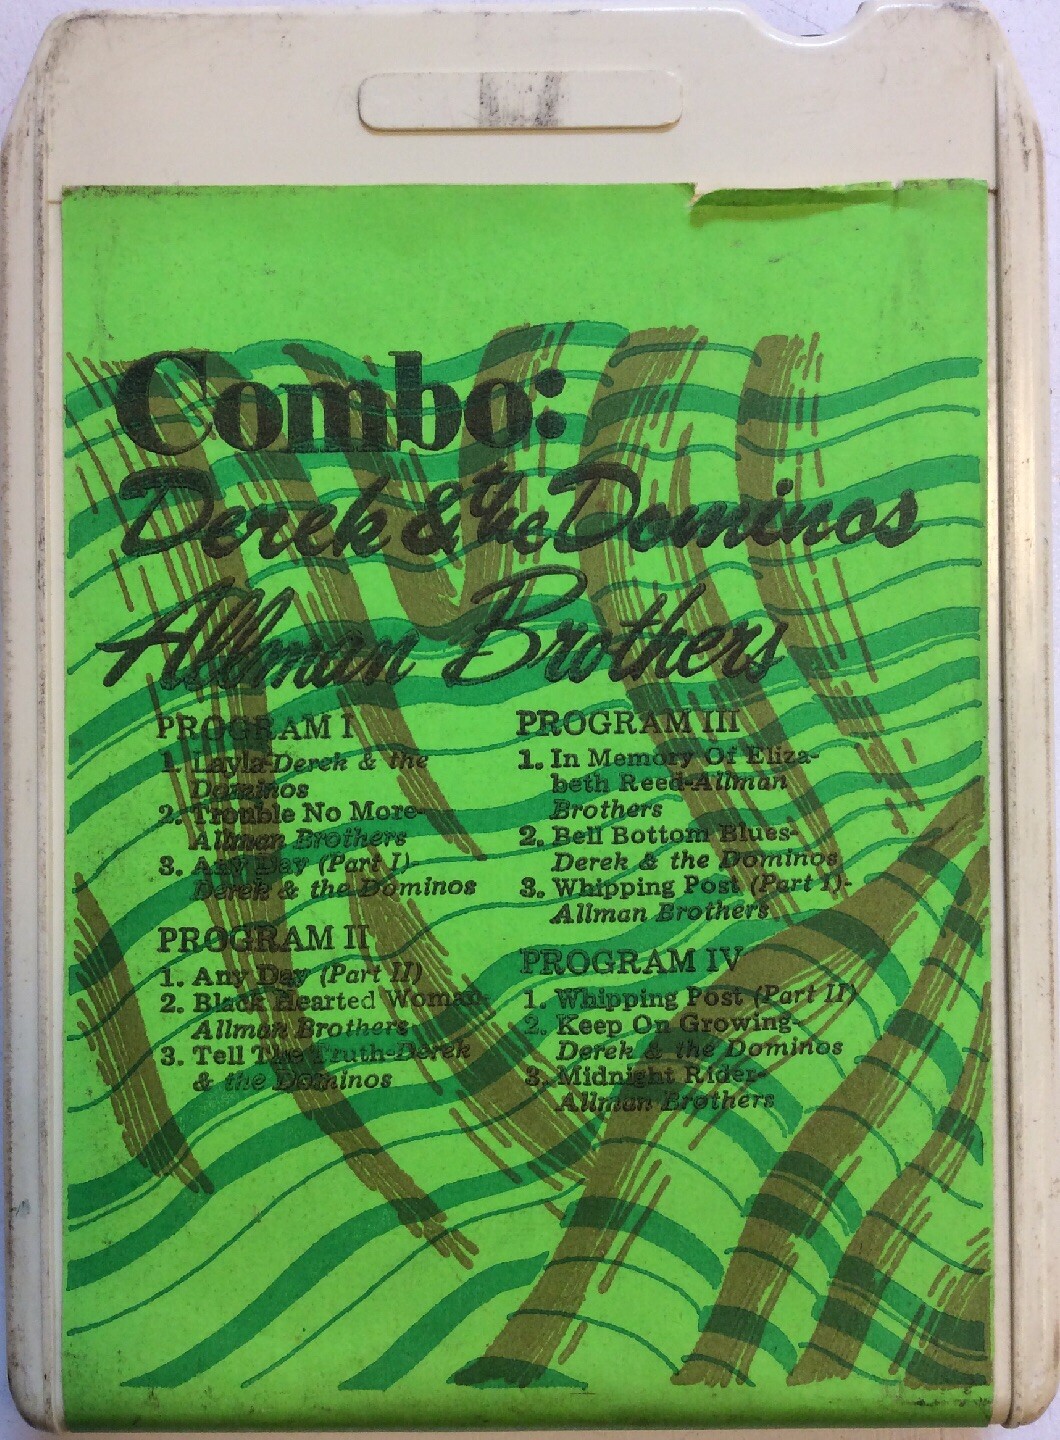 Combo:
Derek & the Dominos
Allman Brothers
PROGRAM I
1. Layla-Derek & the
Dominos
2. Trouble No More-
Allman Brothers
3. Any Day (Part I)
Derek & the Dominos
PROGRAM II
1. Any Day (Part II)
2. Black Hearted Woman-
Allman Brothers
3. Tell The Truth-Derek
& the Dominos
PROGRAM III
1. In Memory Of Eliza-
beth Reed-Allman
Brothers
2. Bell Bottom Blues-
Derek & the Dominos
3. Whipping Post (Part I)-
Allman Brothers
PROGRAM IV
1. Whipping Post (Part II)
2. Keep On Growing-
Derek & the Dominos
3. Midnight Rider-
Allman Brothers